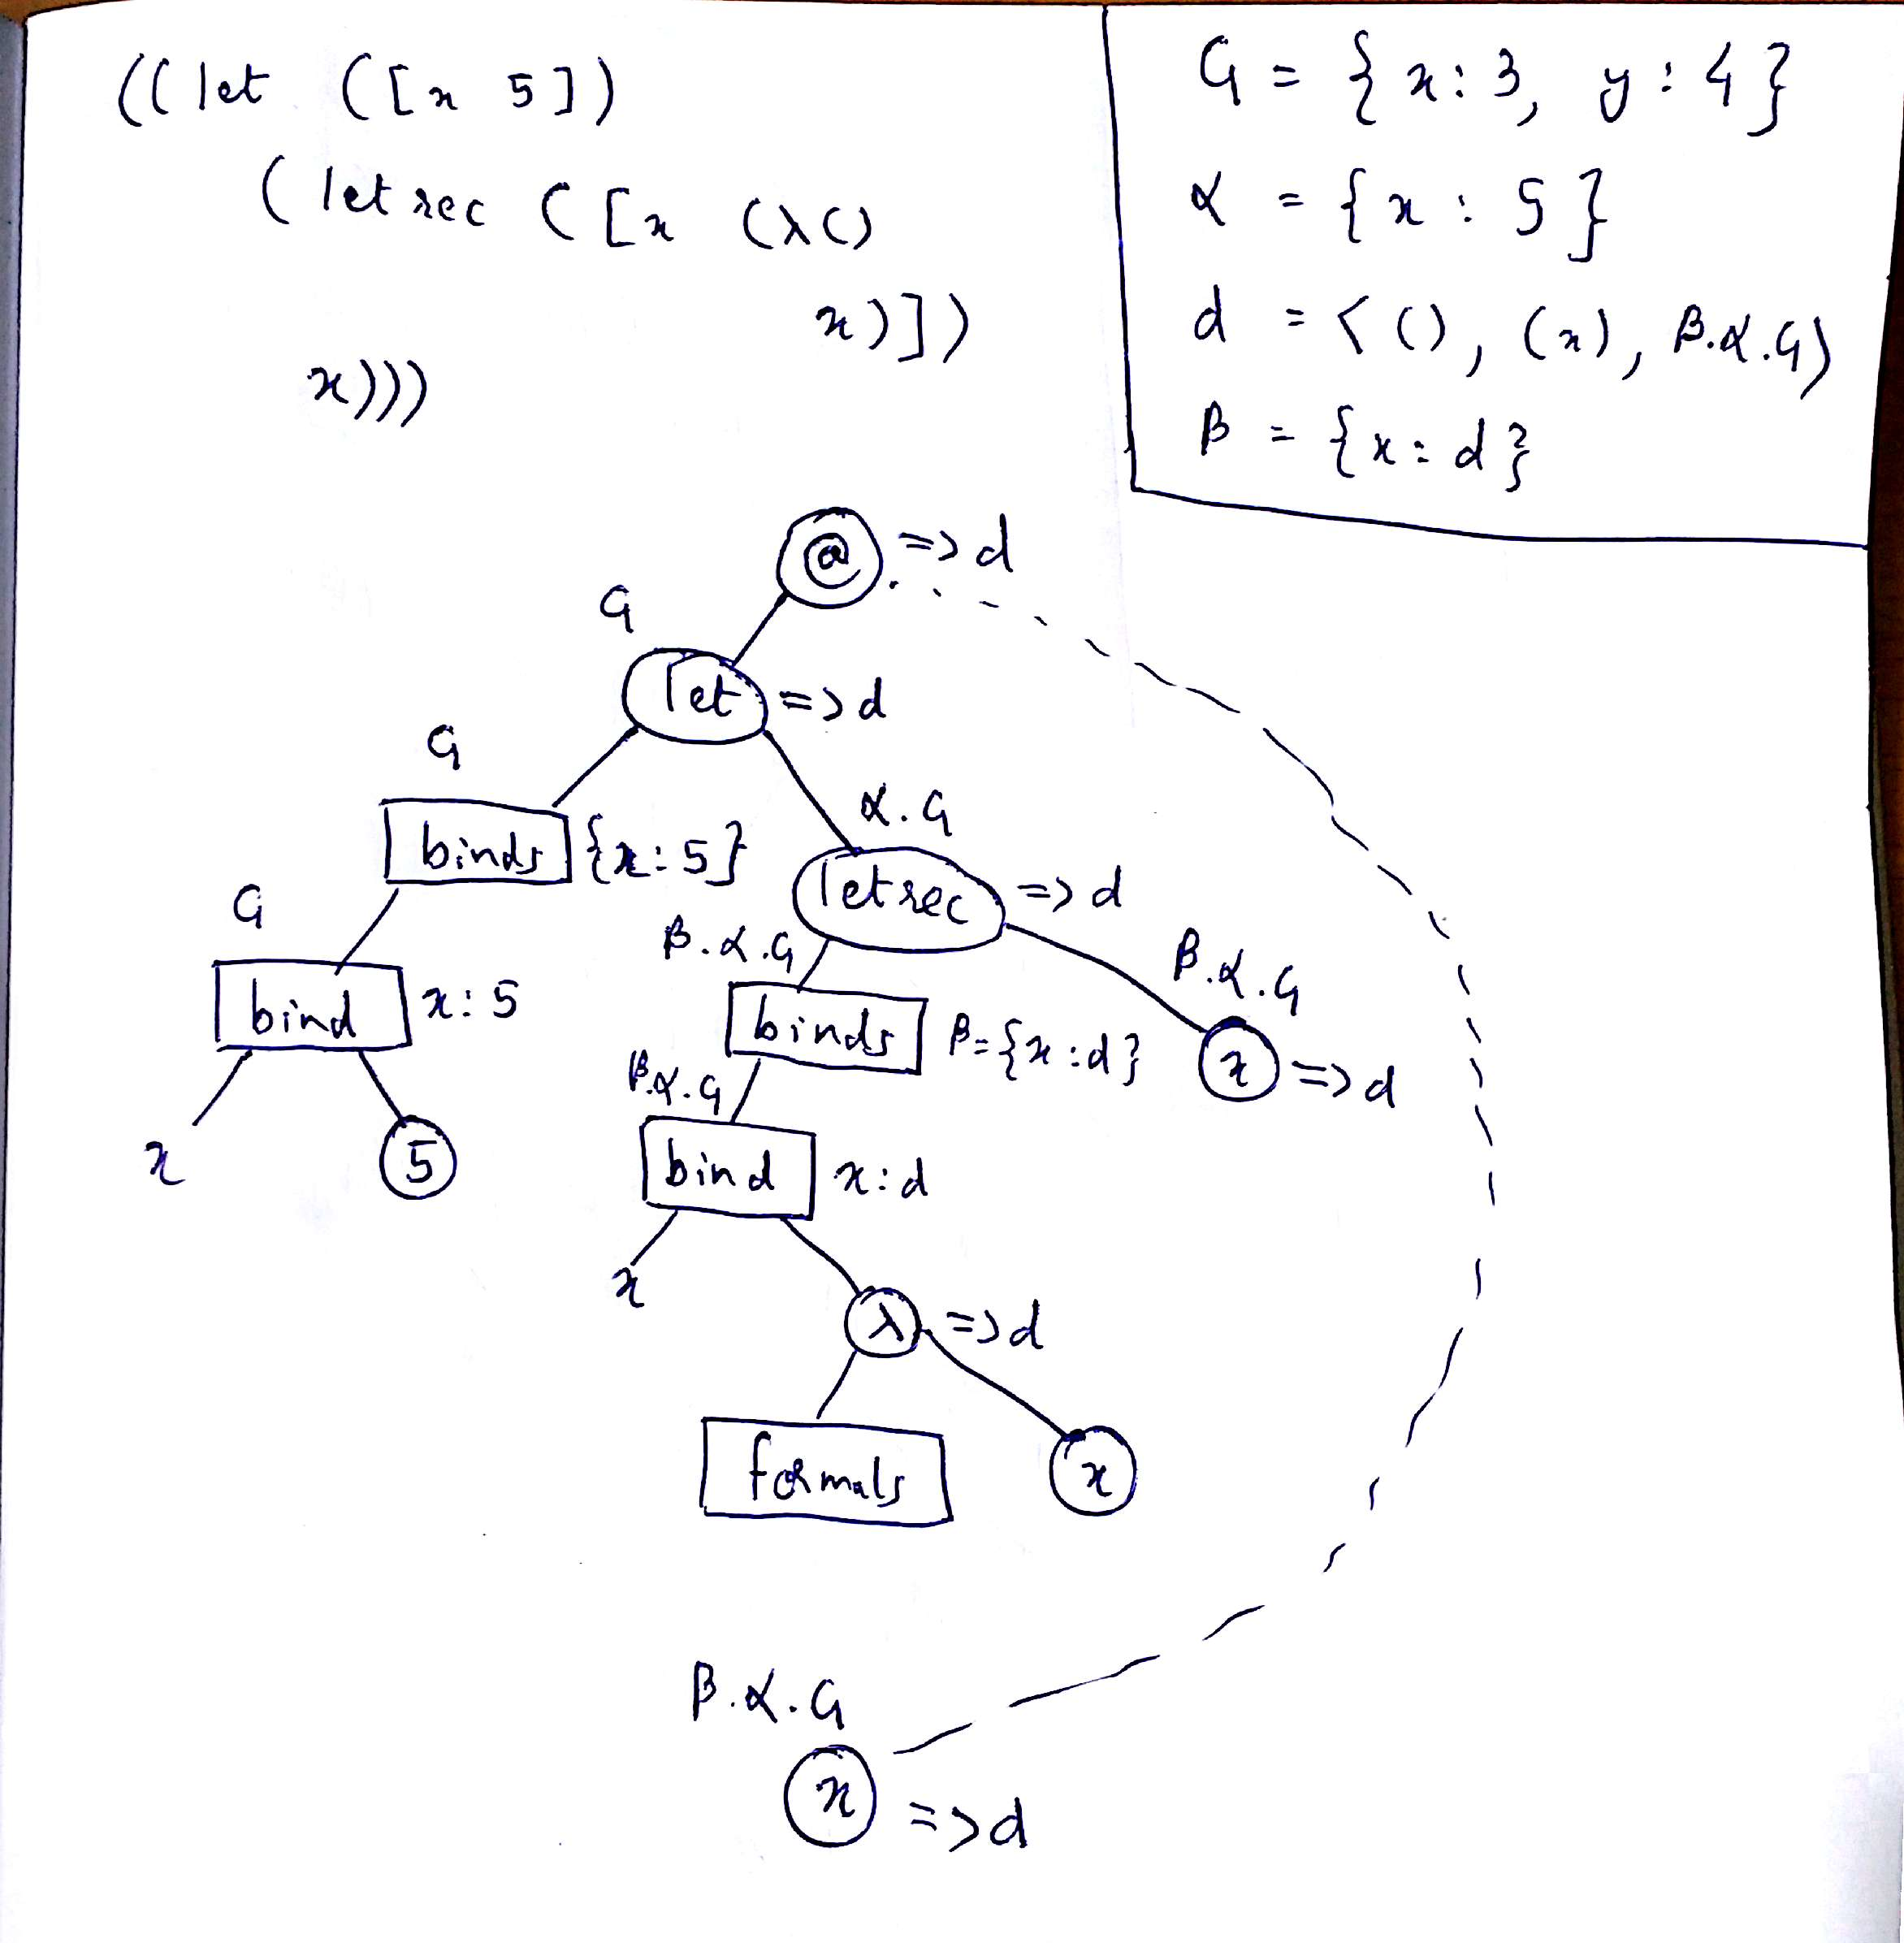 ((let ([x 5])
(letrec ([x (λ()
x)])
x)))
G = {x:3, y:4}
α = {x:5}
d = <(), (x), β.α.G>
β = {x:d}
@ => d
G
let => d
G
binds {x:5}
α.G
letrec => d
G
bind x:5
β.α.G
binds β={x:d}
β.α.G
x => d
x
5
β.α.G
bind x:d
x
λ => d
formals
x
β.α.G
x => d